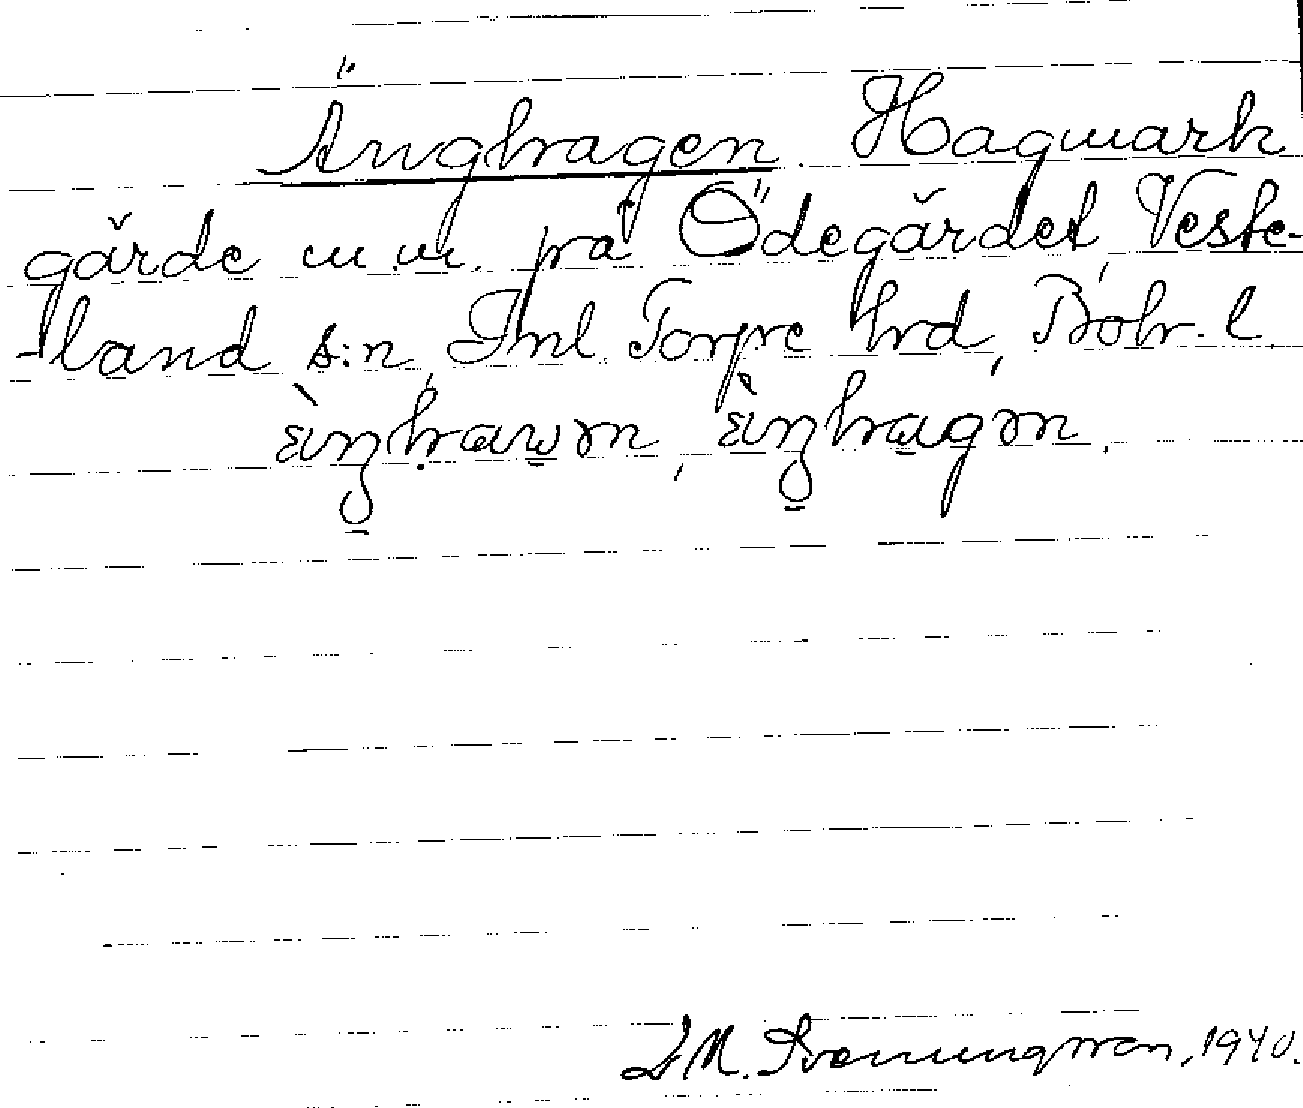 Änghagen. Hagmark
gärde m.m. på Ödegärdet, Veste-
-land s:n, Inl. Torpe hrd, Boh. l.
J M. Svenungsson, 1940.